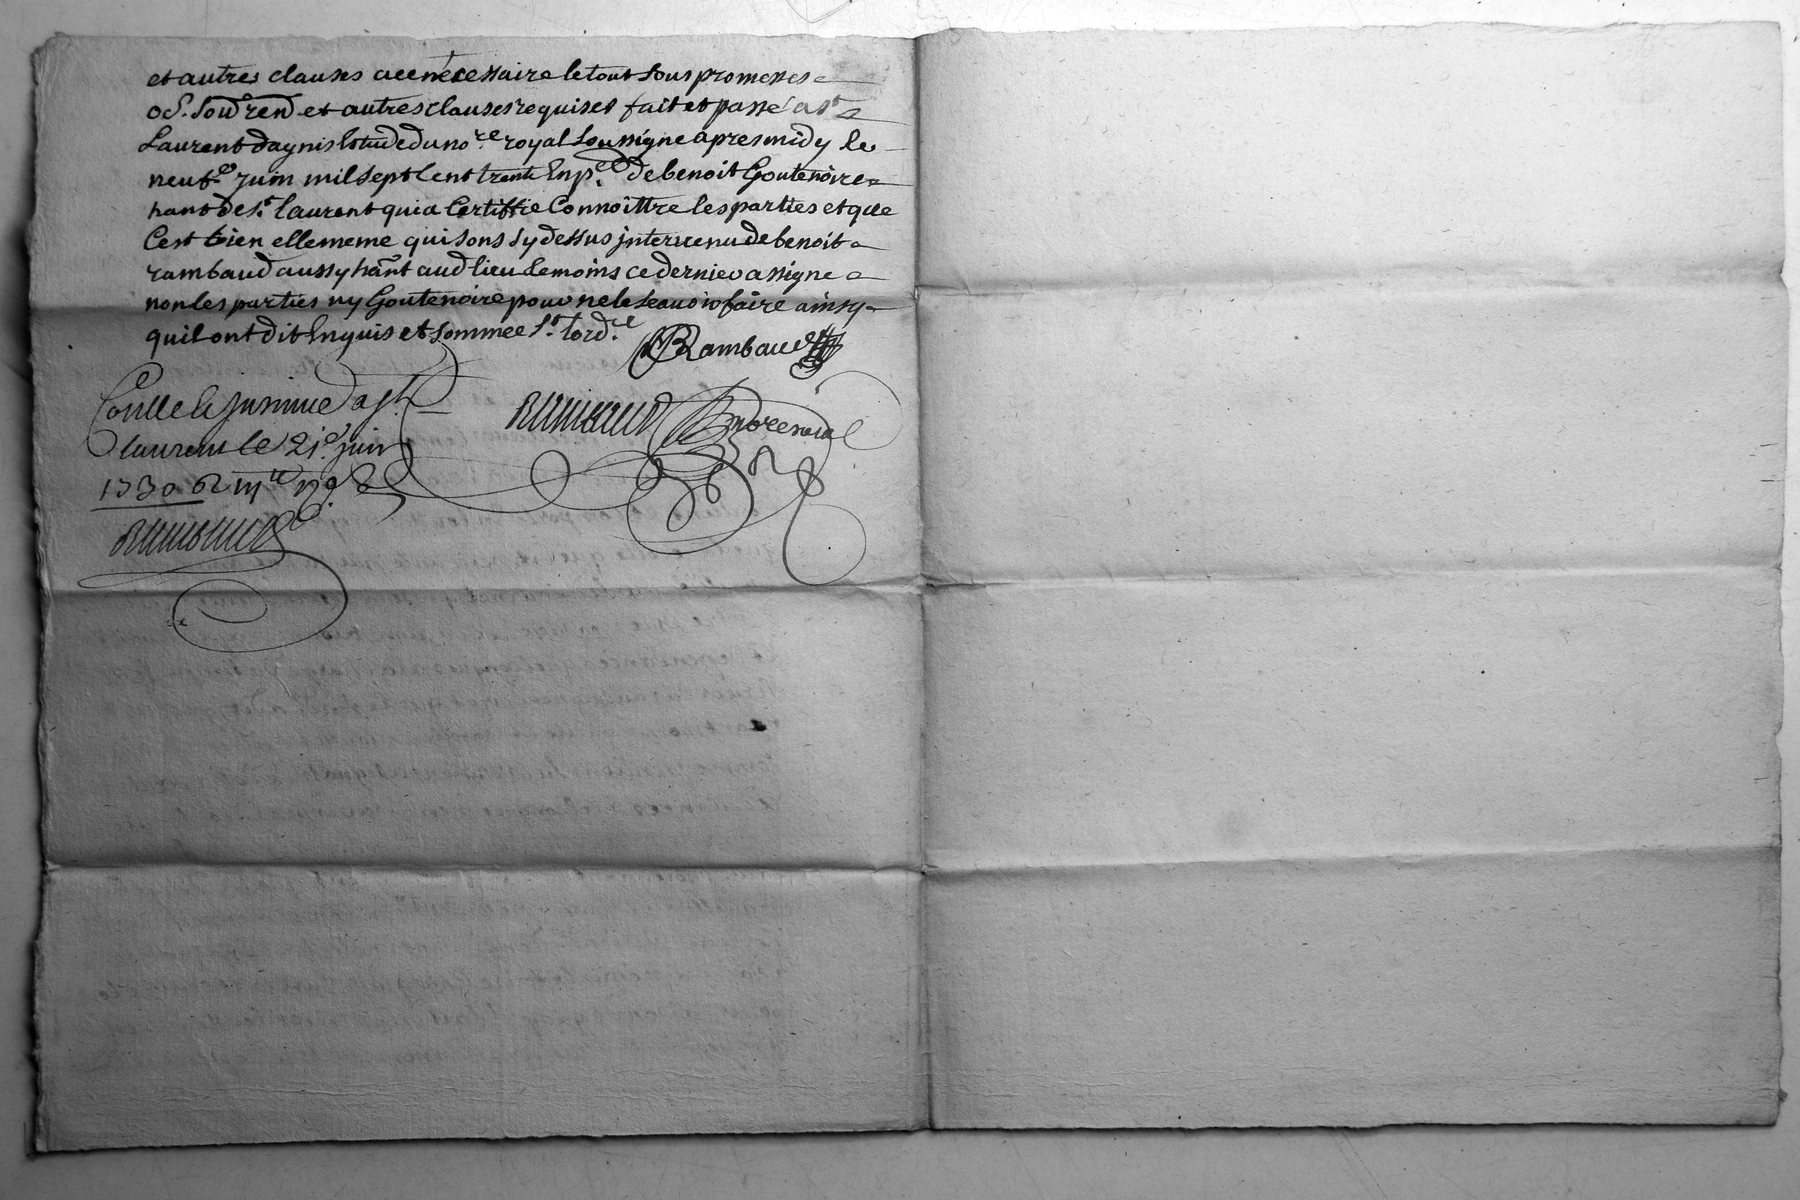 et autres clauses a ce necessaire le tout sous promesses
ob. soub. ren. et autres clauses requises fait et passé a st
Laurent dagnis Estude du no.re royal soussigne apres midy le
neuf.e juin mil sept cent trente En p.ce de benoit Goutenoire
hant de s.t laurent qui a Certiffie Connoittre les parties et que
Cest bien elle meme qui sons sy dessus intervenu de benoit
rambaud aussy hant aud lieu temoins ce dernier a signe
non les parties ny Goutenoire pour ne le scavoir faire ainsy
quil ont dit Enquis et sommée s.t lord.e
Rambaud
Conlle & Insinue a st
laurent le 21.e juin
1730